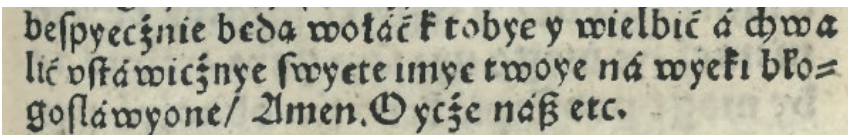 beſpyecżnie będą wołáć k tobye y wielbić á chwa
lić vſtáwicżnye ſwyęte imyę twoye ná wyeki bło⸗
goſláwyone/ Amen. Oycże náß etc.